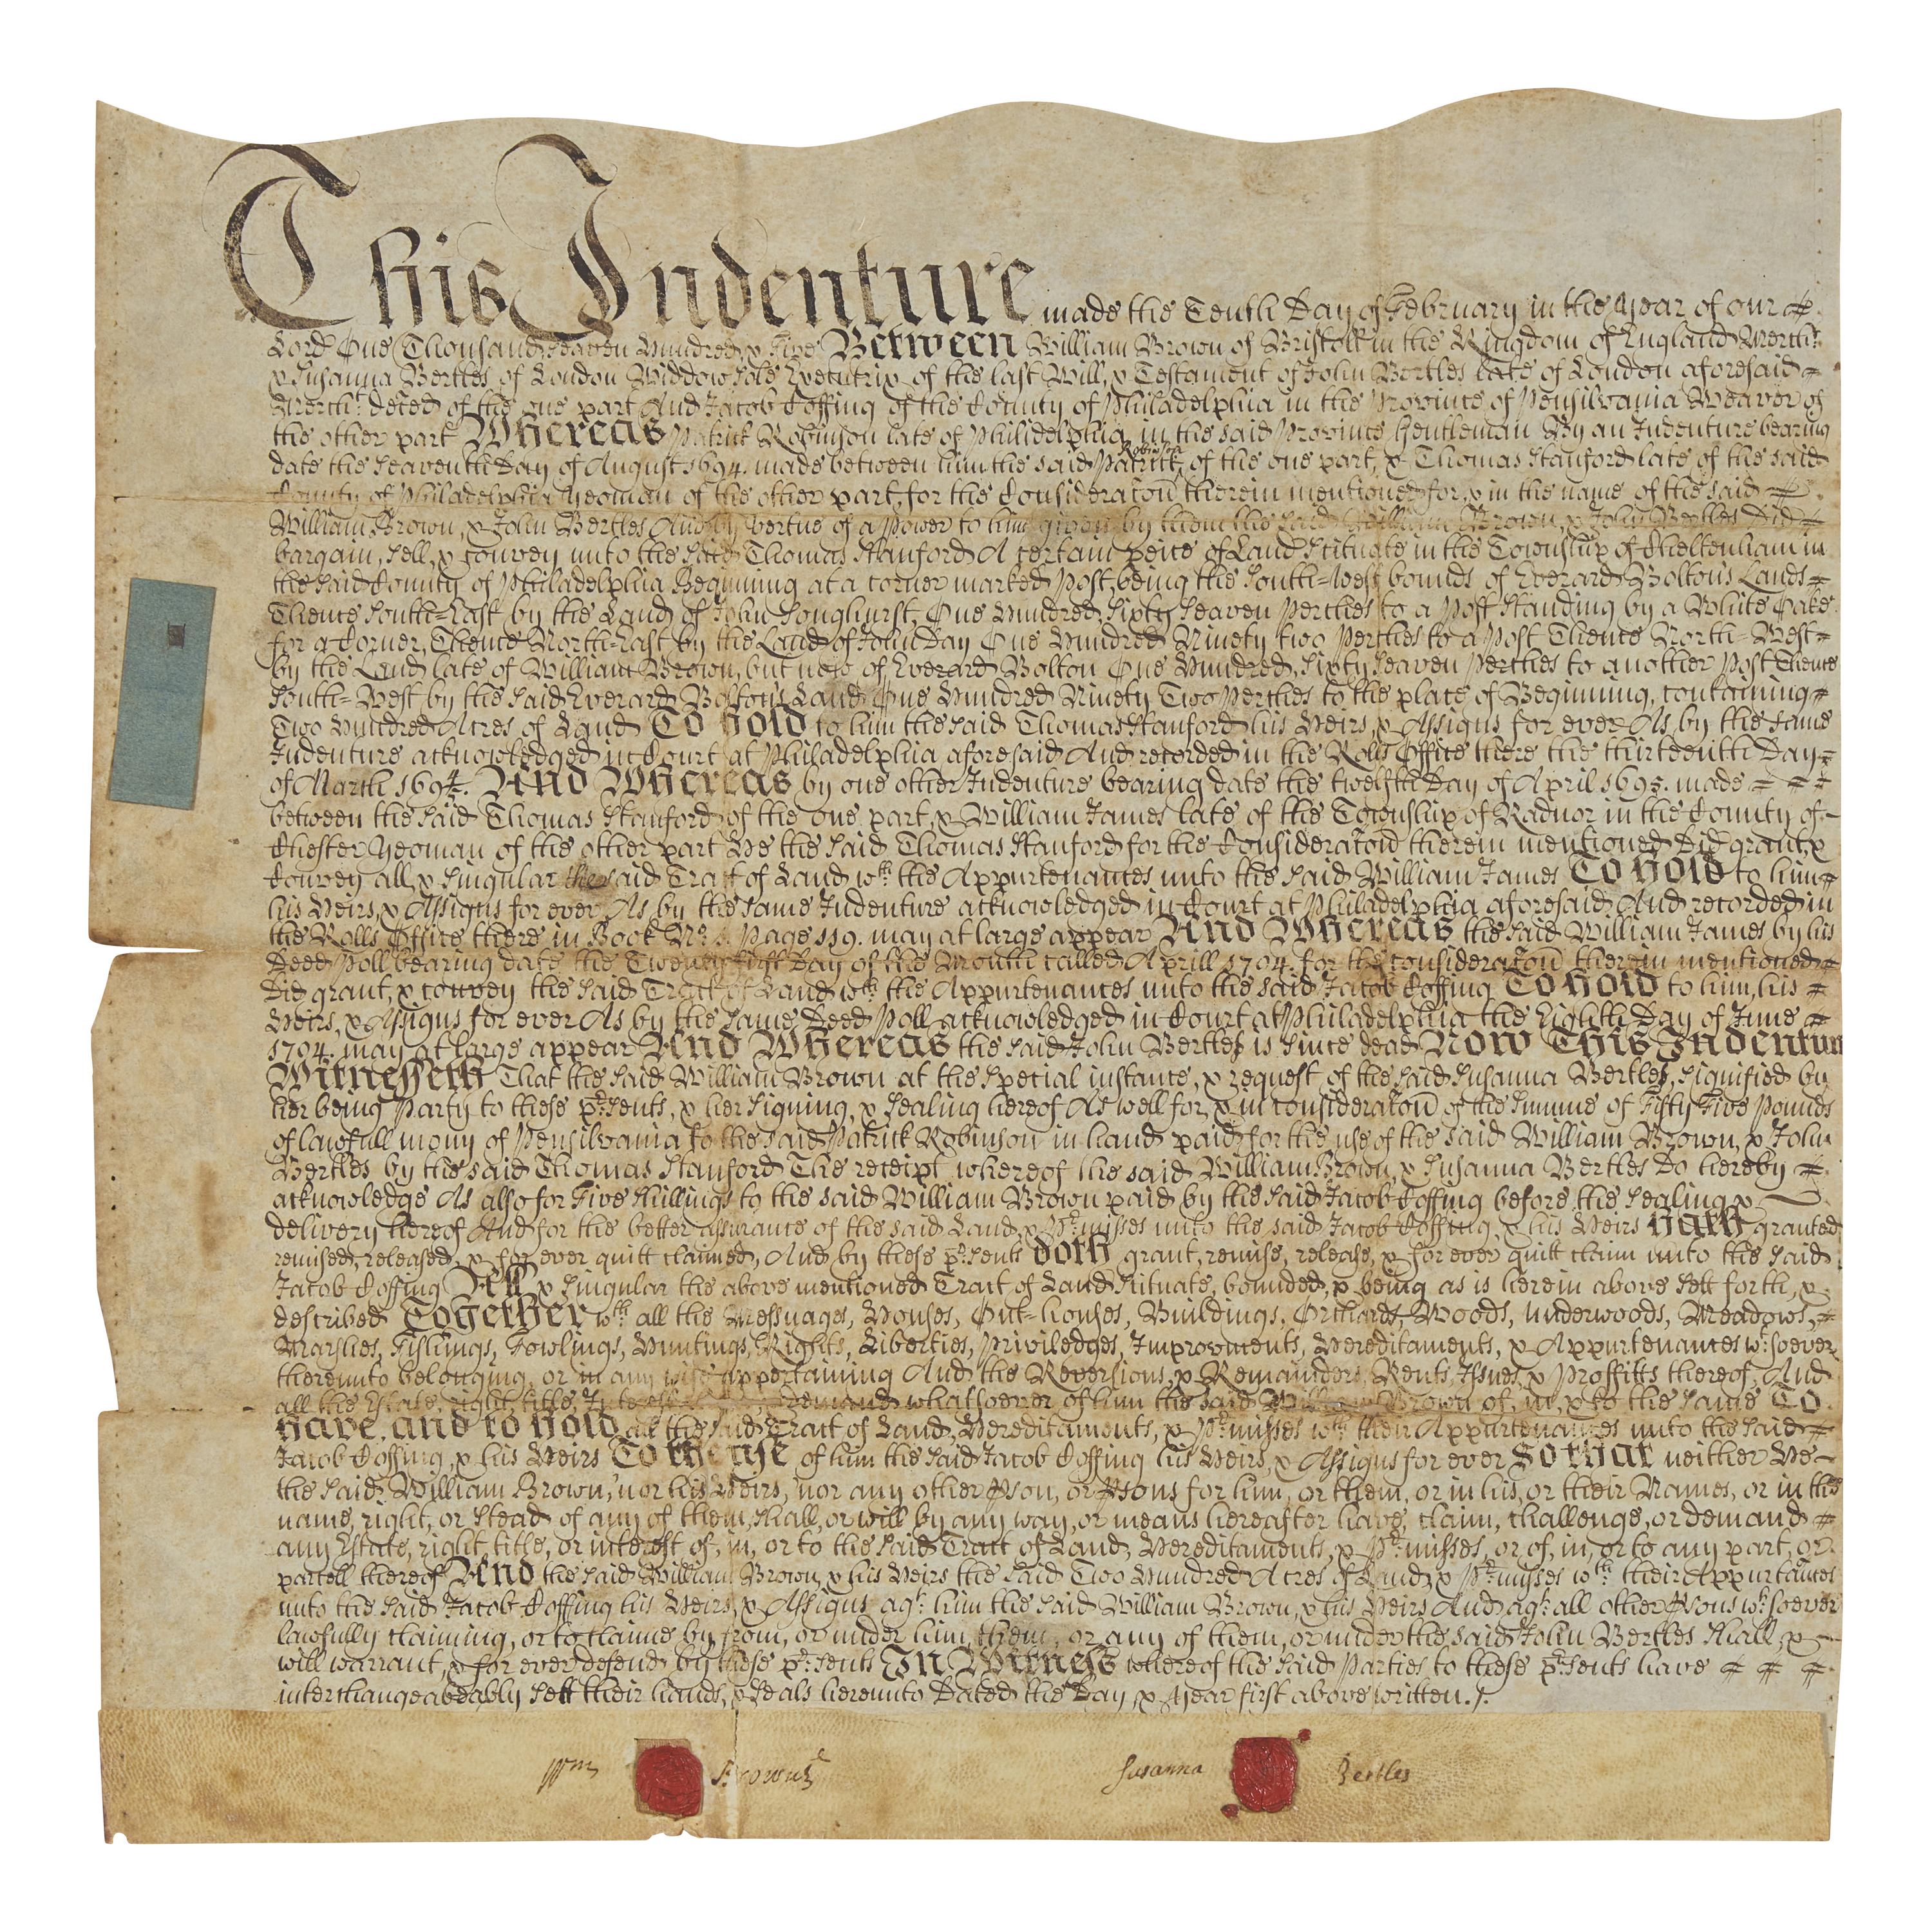 This Indenture made the Tenth Day of February in the Year of our
Lord One Thousand Seaven Hundred & Five Between William Brown of Bristoll in the Kingdom of England Mercht.
& Susanna Bertles of London Widdow Sole Executrix of the last Will & Testament of John Bertles late of London aforesaid
Mercht. deced of the one part And Jacob Coffing of the County of Philadelphia in the Province of Pensilvania Weaver of
the other part Whereas Patrick Robinson late of Philidelphia in the said Province Gentleman By an Indenture bearing
date the Seaventh Day of August 1694. made between him the said Patrick Robinson of the one part, & Thomas Stanford late of the said
County of Philadelphia Yeoman of the other part, for the Consideraton therein mentioned for, & in the name of the said
William Brown, & John Bertles And by vertue of a Power to him given by them the said William Brown, & John Bertles Did
bargain, Sell, & convey unto the Said Thomas Stanford A certain peice of Land Scituate in the Township of Cheltenham in
the Said County of Philadelphia Beginning at a corner marked Post, being the South-West bounds of Everard Bolton's Lands
Thence South-East by the Land of John Songhurst, One Hundred Sixty Seaven Perches to a Post Standing by a White Oake
for a Corner, Thence North-East by the Land of John Day One Hundred Ninety two Perches to a Post Thence North-West
by the Land late of William Brown, but now of Everard Bolton One Hundred, Sixty Seaven Perches to another Post Thence
South-West by the Said Everard Bolton's Land One Hundred Ninety Two Perches to the place of Beginning, containing
Two Hundred Acres of Land To hold to him the Said Thomas Stanford his Heirs, & Assigns for ever As by the same
Indenture acknowledged in Court at Philadelphia aforesaid And recorded in the Rolls Office there the thirteenth Day
of March 1694/5. And Whereas by one other Indenture bearing date the twelfth Day of April 1695. made
between the Said Thomas Stanford of the one part, & William James late of the Township of Radnor in the County of
Chester Yeoman of the other part He the Said Thomas Stanford for the Consideraton therein mentioned Did grant, &
Convey all, & Singular the said Tract of Land wth. the Appurtenances unto the Said William James To hold to him
his Heirs, & Assigns for ever As by the Same Indenture acknowledged in Court at Philadelphia aforesaid, And recorded in
the Rolls Office there in Book No. Page 119. may at large appear And Whereas the Said William James by his
Deed Poll bearing date the Twenty first Day of the Month called Aprill 1704. for the consideraton therein mentioned
Did grant, & convey the Said Tract of Land wth. the Appurtenances unto the Said Jacob Coffing To hold to him, his
Heirs, & Assigns for ever As by the Same Deed Poll acknowledged in Court at Philadelphia the Eighth Day of June
1704. may at large appear And Whereas the Said John Bertles is Since dead Now This Indenture
Witnesseth That the Said William Brown at the Special instance, & request of the Said Susanna Bertles, Signified by
her being Party to these pr.sents, & her Signing, & Sealing hereof As well for, & in consideraton of the Summe of Fifty Five Pounds
of lawfull mony of Pensilvania to the Said Patrick Robinson in hand paid for the use of the said William Brown, & John
Bertles by the said Thomas Stanford The receipt whereof the said William Brown, & Susanna Bertles Do hereby
acknowledge As also for Five Shillings to the said William Brown paid by the Said Jacob Coffing before the Sealing, &
delivery hereof And for the better assurance of the said Land, & Pr.misses unto the said Jacob Coffing, & his Heirs Hath granted
remised, released, & for ever quitt claimed, And by these pr.sents doth grant, remise, release, & for ever quitt claim unto the Said
Jacob Coffing All & Singular the above mentioned Tract of Land Scituate, bounded, & being as is herein above Sett forth, &
described Together wth. all the Messuages, Houses, Out-houses, Buildings, Orchards, Woods, Underwoods, Meadows,
Marshes, Fishings, Fowlings, Huntings, Rights, Liberties, Priviledges, Improvments, Hereditaments, & Appurtenances wt.soever
thereunto belonging, or in any wise appertaining And the Reversions, & Remainders, Rents, Issues, & Proffitts thereof, And
all the Estate, right, title, Interest demand whatsoever of him the Said William Brown of, in, & to the Same To
have, and to hold all the Said Tract of Land, Hereditaments, & Pr.misses wth. their Appurtenances unto the Said
Jacob Coffing, & his Heirs To the use of him the Said Jacob Coffing his Heirs, & Assigns for ever So that neither He
the Said William Brown, nor his Heirs, nor any other Pson, or Psons for him, or them, or in his, or their Names, or in the
name, right, or Stead of any of them, Shall, or will by any way, or means hereafter have, claim, challenge, or demand
any Estate, right, title, or interest of, in, or to the Said Tract of Land, Hereditaments, & Pr.misses, or of, in, or to any part, or
parcell thereof And the Said William Brown, & his Heirs the Said Two Hundred Acres of Land, & Pr.misses wth. their Appurtances
unto the Said Jacob Coffing his Heirs, & Assigns agt. him the Said William Brown, & his Heirs And agt. all other Psons wt.soever
lawfully claiming, or to claime by, from, or under him, them, or any of them, or under the said John Bertles Shall, &
will warrant, & for ever defend by these pr.sents In Witness whereof the Said Parties to these pr.sents have
interchangeabably Sett their hands, & Seals hereunto Dated the Day, & Year first above written.
Wm Browne Susanna Bertles